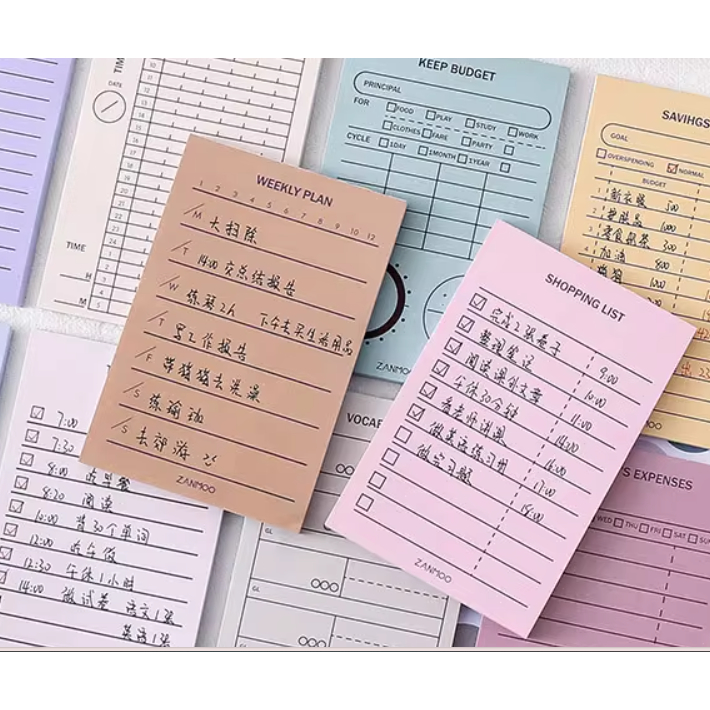 TIME
DATE
10
11
12
13
14
15
16
17
18
19
20
21
22
23
24
1
2
3
4
5
TIME
H
M
KEEP BUDGET
PRINCIPAL
FOR FOOD PLAY STUDY WORK
CLOTHES FARE PARTY
CYCLE 1DAY 1MONTH 1YEAR
ZANMOO
SAVINGS
GOAL
OVERSPENDING NORMAL
BUDGET
1 新衣服 500
2 护肤品 1000
3 零食奶茶 300
4 加油 800
1000
WEEKLY PLAN
1 2 3 4 5 6 7 8 9 10 12
M 大扫除
T 14:00 交总结报告
W 练琴2h 下午去买生活用品
T 写工作报告
F 带猫猫去洗澡
S 练瑜珈
S 去郊游
ZANMOO
SHOPPING LIST
完成2张卷子 9:00
整理笔记 10:00
阅读课外文章 11:00
午休30分钟 14:00
看老师讲题 16:00
做英语练习册 17:00
做完习题 18:00
ZANMOO
7:00
7:30
8:00 吃早餐
8:20 阅读
10:00 背30个单词
12:00 吃午饭
12:30 午休1小时
14:00 做试卷 语文1张
英语1张
VOCAB
GL
GL
'S EXPENSES
WED THU FRI SAT SUN